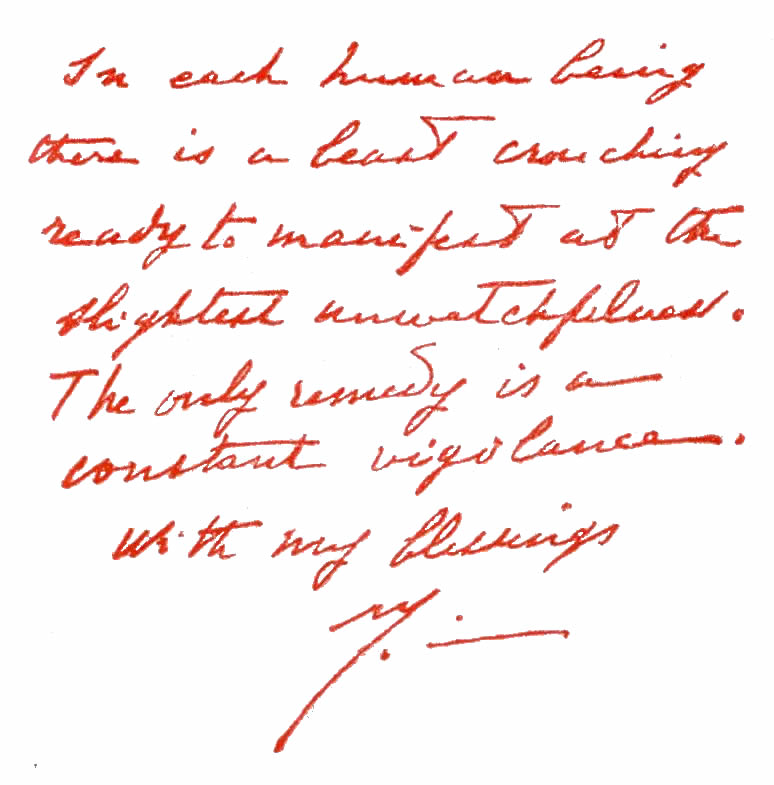 In each human being
there is a beast crouching
ready to manifest at the
slightest unwatchfulness.
The only remedy is a
constant vigilance.
With my blessings